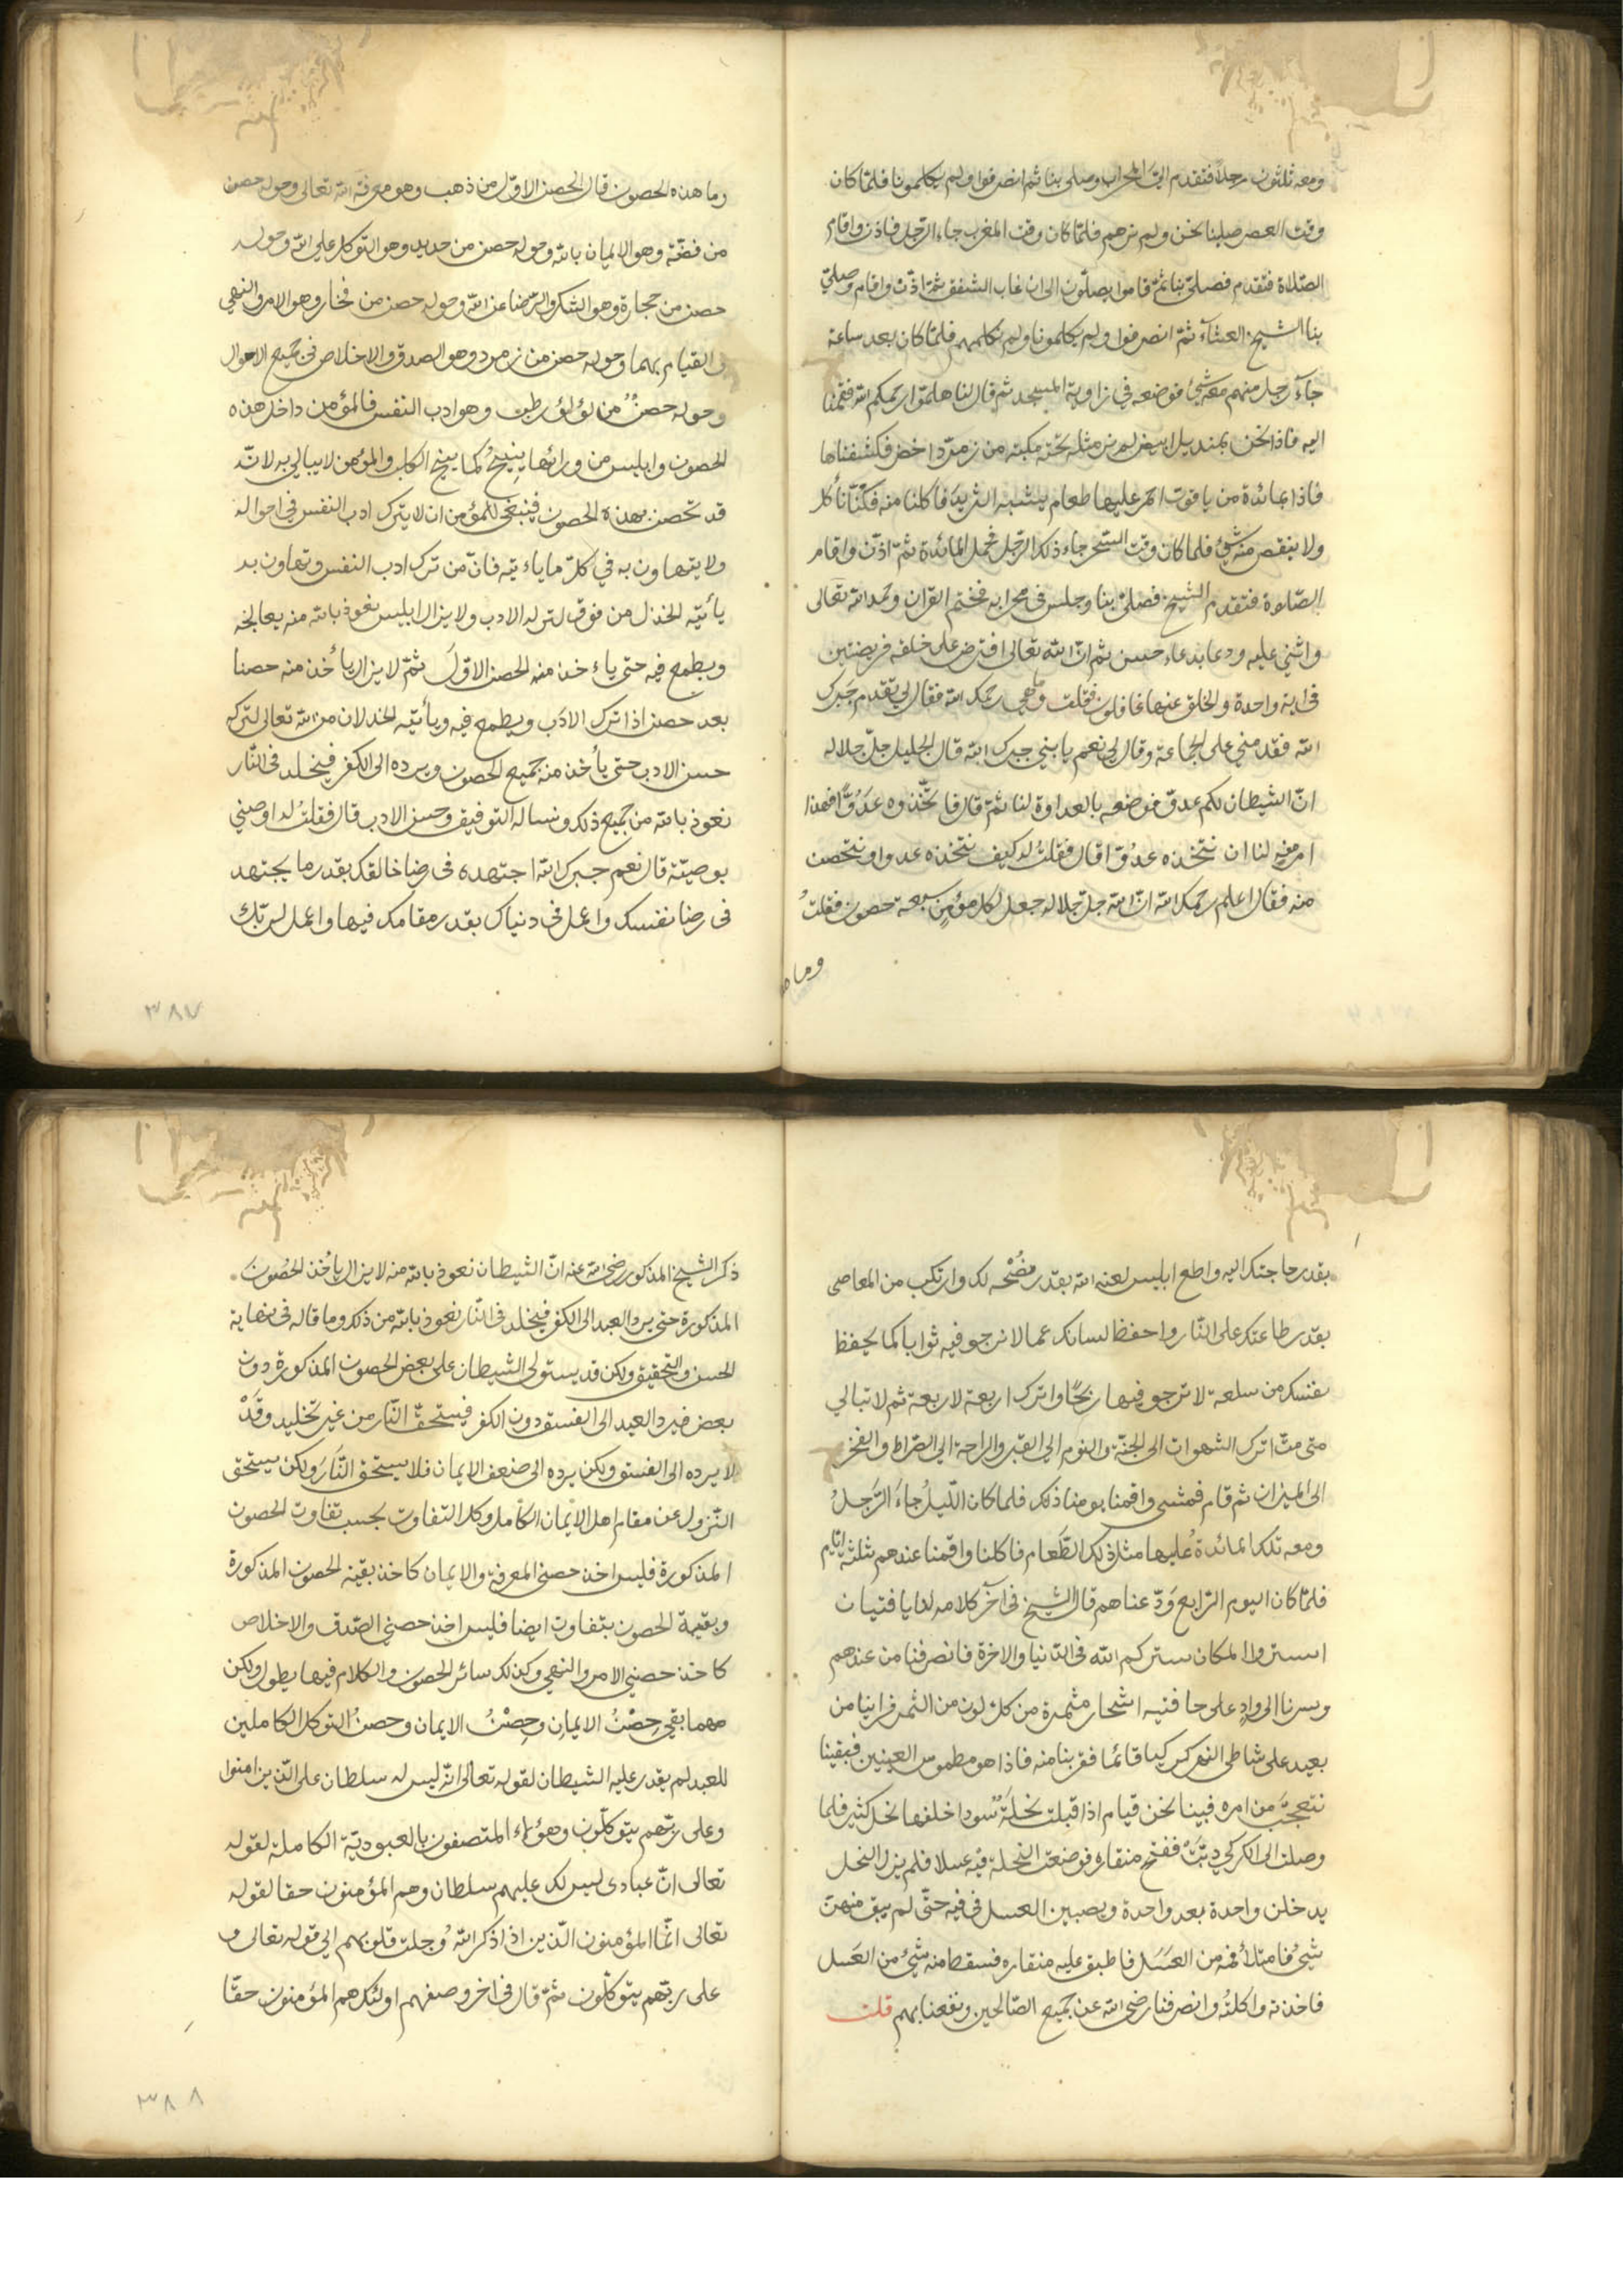 ومعه ثلثون رجلاً فتقدم الى المحراب وصلى بنا ثم انصرفوا ولم يكلمونا فلمّا كان
وقت العصر صلينا نحن ولم نرهم فلمّا كان وقت المغرب جاء الرجل فاذن واقام
الصّلاة فتقدم فصلىّ بنا ثمّ قاموا يصلّون الى ان غاب الشفق ثمّ اذّن واقام وصلىّ
بنا الشيخ العشآء ثمّ انصرفوا ولم يكلمونا ولم نكلمهم فلمّا كان بعد ساعة
جآء رجل منهم معه شئ فوضعه في زاوية المسجد ثم قال لنا هلموّا رحمكم الله فقمنا
اليه فاذا نحن بمنديل ابيض لم نر مثله تحته مكبّة من زمرّد اخضر فكشفناها
فاذا بمائدة من ياقوت احمر عليها طعام يشبه الثريد فاكلنا منه فكنّا نأكل
ولا ينقص منه شئ فلما كان وقت السّحر جاء ذلك الرّجل فحمل المائدة ثمّ اذّن واقام
الصّلوة فتقدم الشيخ فصلىّ بنا وجلس فى محرابه فختم القران وحمد الله تعالى
واثنى عليه ودعا بدعاء حسن ثم قال انّ الله تعالى افترض على خلقه فريضتين
فى اية واحدة والخلق عنها غافلون فقلت وما هي رحمك الله فقال لي تقدم جبرك
الله فقدمني على الجماعة وقال لي نعم يا بني جبرك الله قال الجليل جلّ جلاله
انّ الشيطان لكم عدوّ فوضعه بالعداوة لنا ثمّ قال فاتّخذوه عدوًّا فهذا
امر منه لنا ان نتّخذه عدوّا قال فقلت له كيف نتخذه عدوا ونتحصن
منه فقال اعلم رحمك الله انّ الله جلّ جلاله جعل لكل مؤمنٍ سبعة حصون فقلتُ
وما ه
وما هذه الحصون قال الحصن الاوّل من ذهب وهو معرفة الله تعالى وحوله حصن
من فضّة وهو الايمان بالله وحوله حصن من حديد وهو التوكل على الله وحوله
حصن من حجارة وهو الشكر والرّضا عن الله وحوله حصن من فخار وهو الامر والنهي
والقيام بهما وحوله حصن من زمرد وهو الصدق والاخلاص في جميع الاحوال
وحوله حصنٌ من لؤلؤ رطب وهو ادب النفس فالمؤمن داخل هذه
الحصون وابليس من ورائها ينبحُ كما ينبح الكلب والمؤمن لا يبالي به لانّه
قد تحصن بهذه الحصون فينبغى للمؤمن ان لا يترك ادب النفس في احواله
ولا يتهاون به في كلّ ما ياءتيه فانّ من ترك ادب النفس وتهاون به
يأتيه الخذل من فوق لتركه الادب ولا يزال ابليس نعوذ بالله منه يعالجه
ويطمع فيه حتى ياءخذ منه الحصن الاوّل ثمّ لا يزال يأخذ منه حصنا
بعد حصن اذا ترك الادب ويطمع فيه ويأتيه الخذلان من الله تعالى لتركه
حسن الادب حتى يأخذ منه جميع الحصون ويرده الى الكفر فيخلد فى النّار
نعوذ بالله من جميع ذلك ونسأله التوفيق وحسن الادب قال فقلتُ له اوصني
بوصيّة قال نعم جبرك الله اجتهد فى رضا خالقك بقدر ما يجتهد
فى رضا نفسك واعمل فى دنياك بقدر مقامك فيها واعمل لربّك
٣٨٧
بقدر حاجتك اليه واطع ابليس لعنه الله بقدر نصحه لك وارتكب من المعاصى
بقدر طاعتك على النّار واحفظ لسانك عما لا ترجو فيه ثوابا كما تحفظ
نفسك من سلعة لا ترجو فيها ربحًا واترك اربعة لاربعة ثم لا تبالي
متى متّ اترك الشهوات الى الجنّة والنوم الى القبر والراحة الى الصّراط والفخر
الى الميزان ثم قام فمشى واقمنا يومنا ذلك فلما كان اللّيلُ جاءَ الرّجلُ
ومعه تلك المائدة عليها مثل ذلك الطّعام فاكلنا واقمنا عندهم ثلثة ايّام
فلمّا كان اليوم الرّابع وَدّعناهم قال الشيخ فى آخر كلامه لنا يا فتيان
استروا المكان ستركم الله فى الدّنيا والاخرة فانصرفنا من عندهم
وسرنا الى وادٍ على حافتيه اشجار مثمرة من كل لون من الثمر فراينا من
بعيد على شاطى النهر كركيا قائما فقربنا منه فاذا هو مطموس العينين فبقينا
نتعجّب من امره فبينا نحن قيام اذ اقبلت نحلةٌ سودا خلفها نحل كثير فلما
وصلت الى الكركي دبّت ففتح منقاره فوضعت النحلة فيه عسلا فلم يزل النحل
يدخلن واحدة بعد واحدة ويصببن العسل فى فيه حتّى لم يبق منهنّ
شئ فامتلأ فمه من العسَل فاطبق عليه منقاره فسقط منه شئ من العَسل
فاخذته واكلتُه وانصرفنا رضى الله عن جميع الصّالحين ونفعنا بهم قلت
ذكر الشيخ المذكور رضى الله عنه انّ الشيطان نعوذ بالله منه لا يزال يأخذ الحصون
المذكورة حتى يرد العبد الى الكفر فيخلد فى النّار نعوذ بالله من ذلك وما قاله فى نهاية
الحسن والتحقيق ولكن قد يستولى الشيطان على بعض الحصون المذكورة دون
بعض فيرد العبد الى الفسق دون الكفر فيستحقّ النّار من غير تخليد وقَدْ
لا يرده الى الفسق ولكن يرده الى ضعف الايمان فلا يستحق النّارَ ولكن يستحق
النّزول عن مقام اهل الايمان الكامل وكل التفاوت بحسب تفاوت الحصون
المذكورة فليس اخذ حصني المعرفة والايمان كاخذ بقيّة الحصون المذكورة
وبقية الحصون يتفاوت ايضا فليس اخذ حصني الصّدق والاخلاص
كاخذ حصني الامر والنهي وكذلك سائر الحصون والكلام فيها يطول ولكن
مهما بقي حِصْنُ الايمانِ وحِصْنُ الايمان وحصنُ التوكل الكاملين
للعبد لم يقدر عليه الشيطان لقوله تعالى انّه ليس له سلطان على الذين امنوا
وعلى ربّهم يتوكلّون وهؤلاء المتصفون بالعبوديّة الكاملة لقوله
تعالى انّ عبادى ليس لك عليهم سلطان وهم المؤمنون حقا لقوله
تعالى انّما المؤمنون الّذين اذا ذكر الله وجلت قلوبهم الى قوله تعالى و
على ربّهم يتوكّلون ثمّ قال فى اخر وصفهم اولئك هم المؤمنون حقّا
٣٨٨